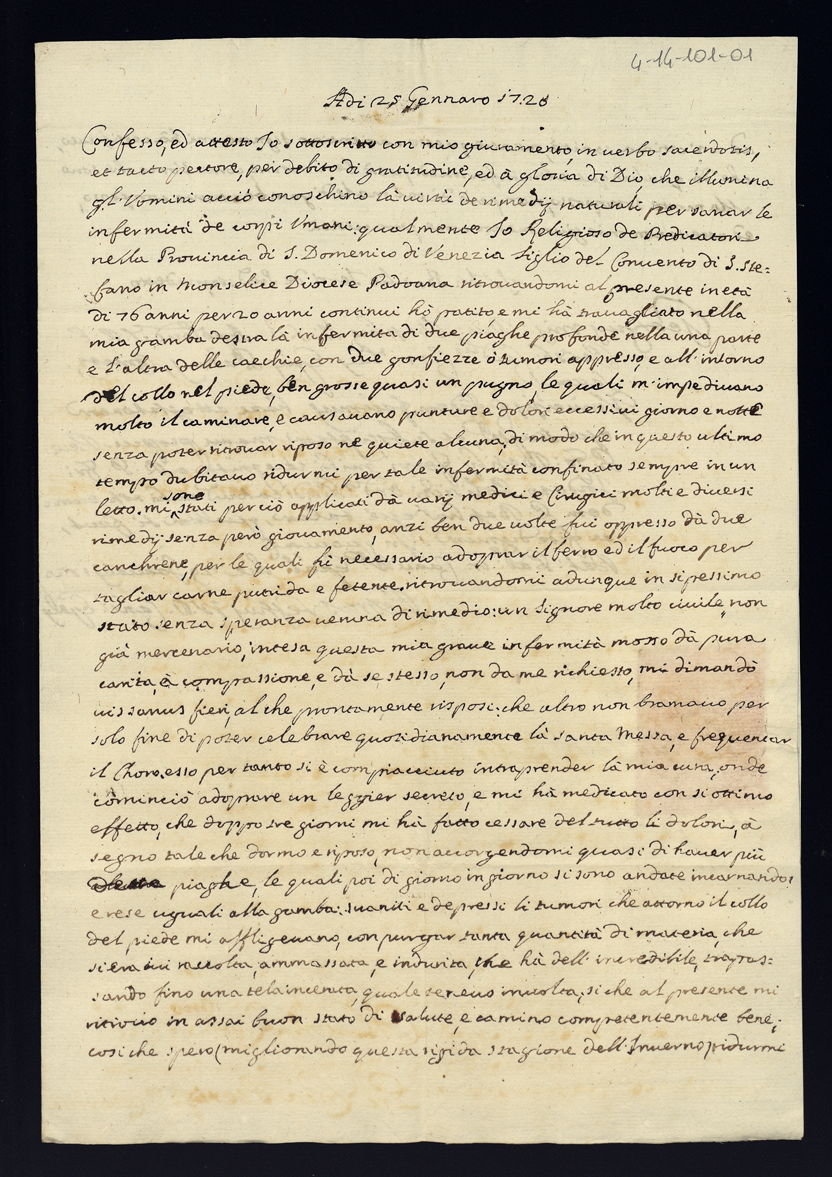 4-14-101-01
Adi 25 Gennaro 1728
Confesso, ed attesto Io sottoscritto con mio giuramento, in verbo sacerdotis,
et tacto pectore, per debito di gratitudine, ed à gloria di Dio, che illumina
gl'Uomini acciò conoschino là virtù de rimedij naturali per sanar le
infermità de corpi Umani: qualmente Io Religioso de Predicatori
nella Provincia di S. Domenico di Venezia figlio del Convento di S. Ste=
fano in Monselice Diocese Padoana ritrovandomi al presente in età
di 76 anni per 20 anni continui hò patito e mi hà travagliato nella
mia gamba destra là infermità di due piaghe profonde nella una parte
e l'altra delle caechie, con due gonfiezze ò tumori appresso, e all'intorno
del collo nel piede, ben grosse quasi un pugno, le quali m'impedivano
molto il caminare, e causavano punture e dolori eccessivi giorno e notte
senza poter ritrovar riposo ne quiete alcuna, di modo che in questo ultimo
tempo dubitavo ridurmi per tale infermità confinato sempre in un
letto. mi sone stati perciò applicati dà varij medici e Cirugici molti e diversi
rimedij senza però giovamento, anzi ben due volte fui oppresso dà due
canchrene, per le quali fù necessario adoprar il ferro ed il fuoco per
tagliar carne putrida e fetente. ritrovandomi adunque in si pessimo
stato senza speranza veruna di rimedio: un signore molto civile, non
già mercenario, intesa questa mia grave infermità mosso dà pura
carità, e compassione, e dà se stesso, non da me richiesto, mi dimandò
vis sanus fieri, al che prontamente risposi: che altro non bramavo per
solo fine di poter celebrare quotidianamente là santa Messa, e frequentar
il Choro. esso per tanto si è compiacciuto intraprender là mia cura, onde
cominciò adoprare un leggier secreto, e mi hà medicato con si ottimo
effetto, che doppo tre giorni mi hà fatto cessare del tutto li dolori, à
segno tale che dormo e riposo, non accorgendomi quasi di haver più
piaghe, le quali poi di giorno in giorno si sono andate incarnando,
e rese uguali alla gamba: svaniti e depressi li tumori che attorno il collo
del piede mi affligevano, con purgar tanta quantità di materia, che
si era ivi raccolta, ammassata, e indurita, che hà dell'incredibile, trapas=
sando fino una tela incerata, quale tenevo involta; si che al presente mi
ritrovo in assai buon stato di salute, e camino competentemente bene;
cosi che spero (migliorando questa rigida stagione dell'Inverno) ridurmi